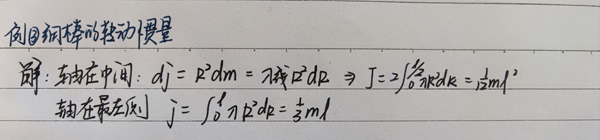 例②细棒的转动惯量
解：车由在中间：dj = R²dm = λR²dR ⇒ J = 2∫₀^{l/2} λR²dR = 1/12 ml²
轴在最左侧 j = ∫₀^l λR²dR = 1/3 ml